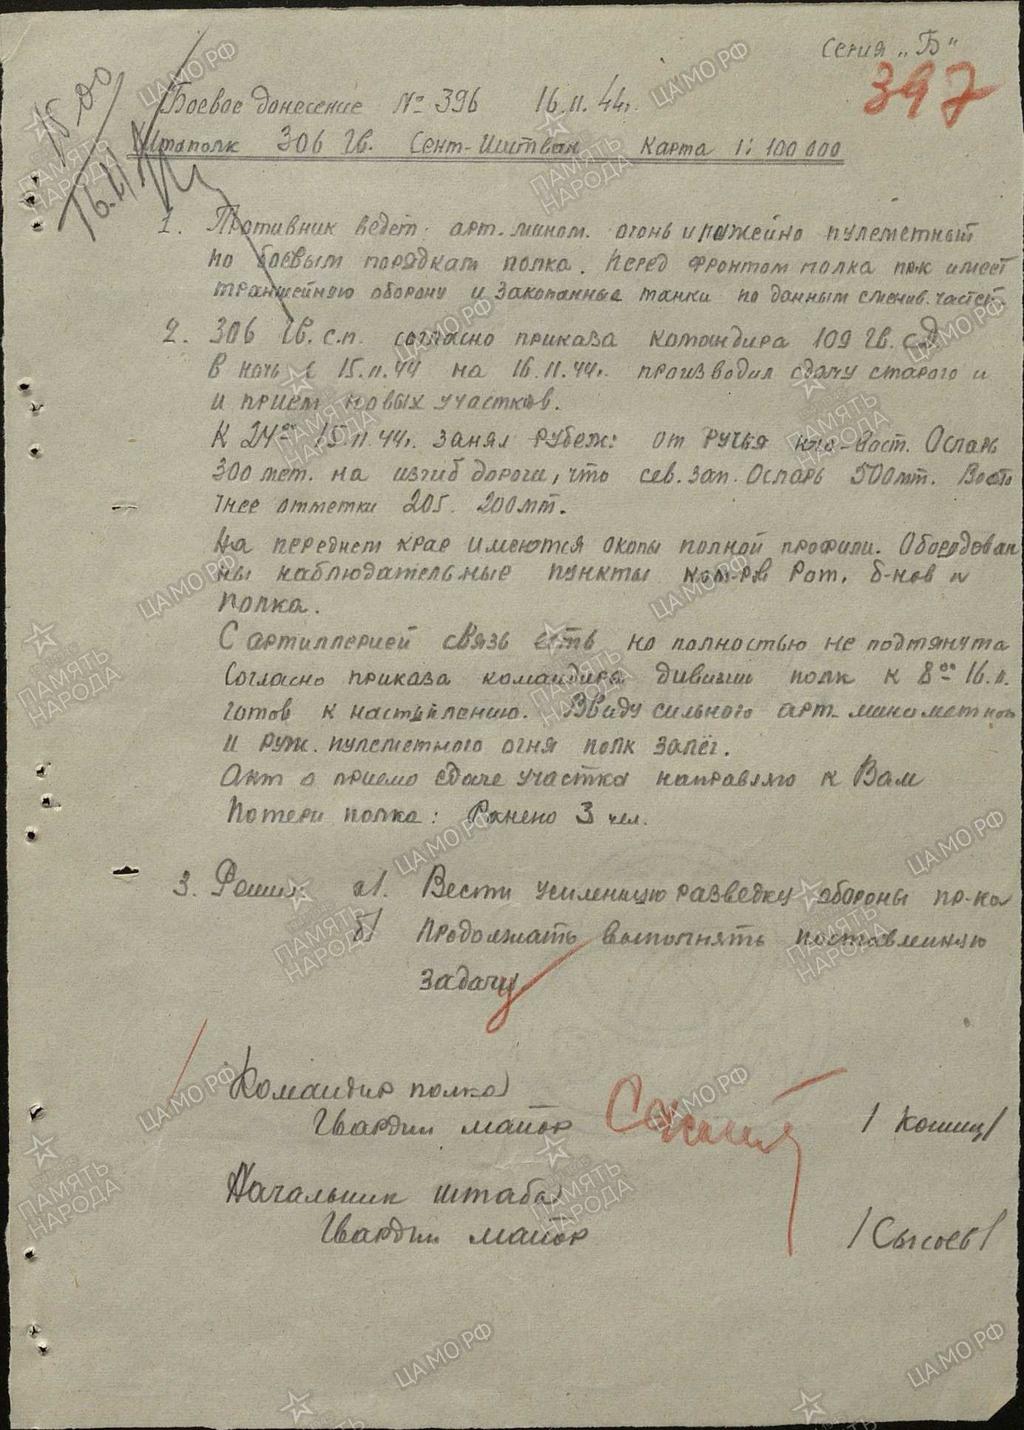 Серия „Б"
397
15.00
16.11
Боевое донесение № 396 16.11.44г.
Штаполк 306 Гв. Сент-Иштван Карта 1:100 000
1. Противник ведет арт. мином. огонь и ружейно пулеметный
по боевым порядкам полка. Перед фронтом полка пр-к имеет
траншейную оборону и закопанные танки по данным сменив. частей.
2. 306 Гв. с.п. согласно приказа командира 109 Гв. сд
в ночь с 15.11.44 на 16.11.44г. производил сдачу старого и
и прием новых участков.
К 24°° 15.11.44г. занял рубеж: от ручья юго-Вост. Ослар
300 мет. на изгиб дороги, что сев. зап. Ослар 500 мт. Восто
чнее отметки 205. 200 мт.
На переднем крае имеются окопы полной профили. Оборудован
ны наблюдательные пункты ком-ров Рот, б-нов и
полка.
С артиллерией связь есть но полностью не подтянута
Согласно приказа командира дивизии полк к 8°° 16.11.
готов к наступлению. Ввиду сильного арт-минометного
и руж. пулеметного огня полк залёг.
Акт о приемо сдаче участка направляю к Вам
Потери полка: Ранено 3 чел.
3. Решил а/. Вести усиленную разведку обороны пр-ка
б/ Продолжать выполнять поставленную
задачу
Командир полка
Гвардии майор /Кошиц/
Начальник штаба
Гвардии майор /Сысоев/
ЦАМО РФ
ПАМЯТЬ НАРОДА